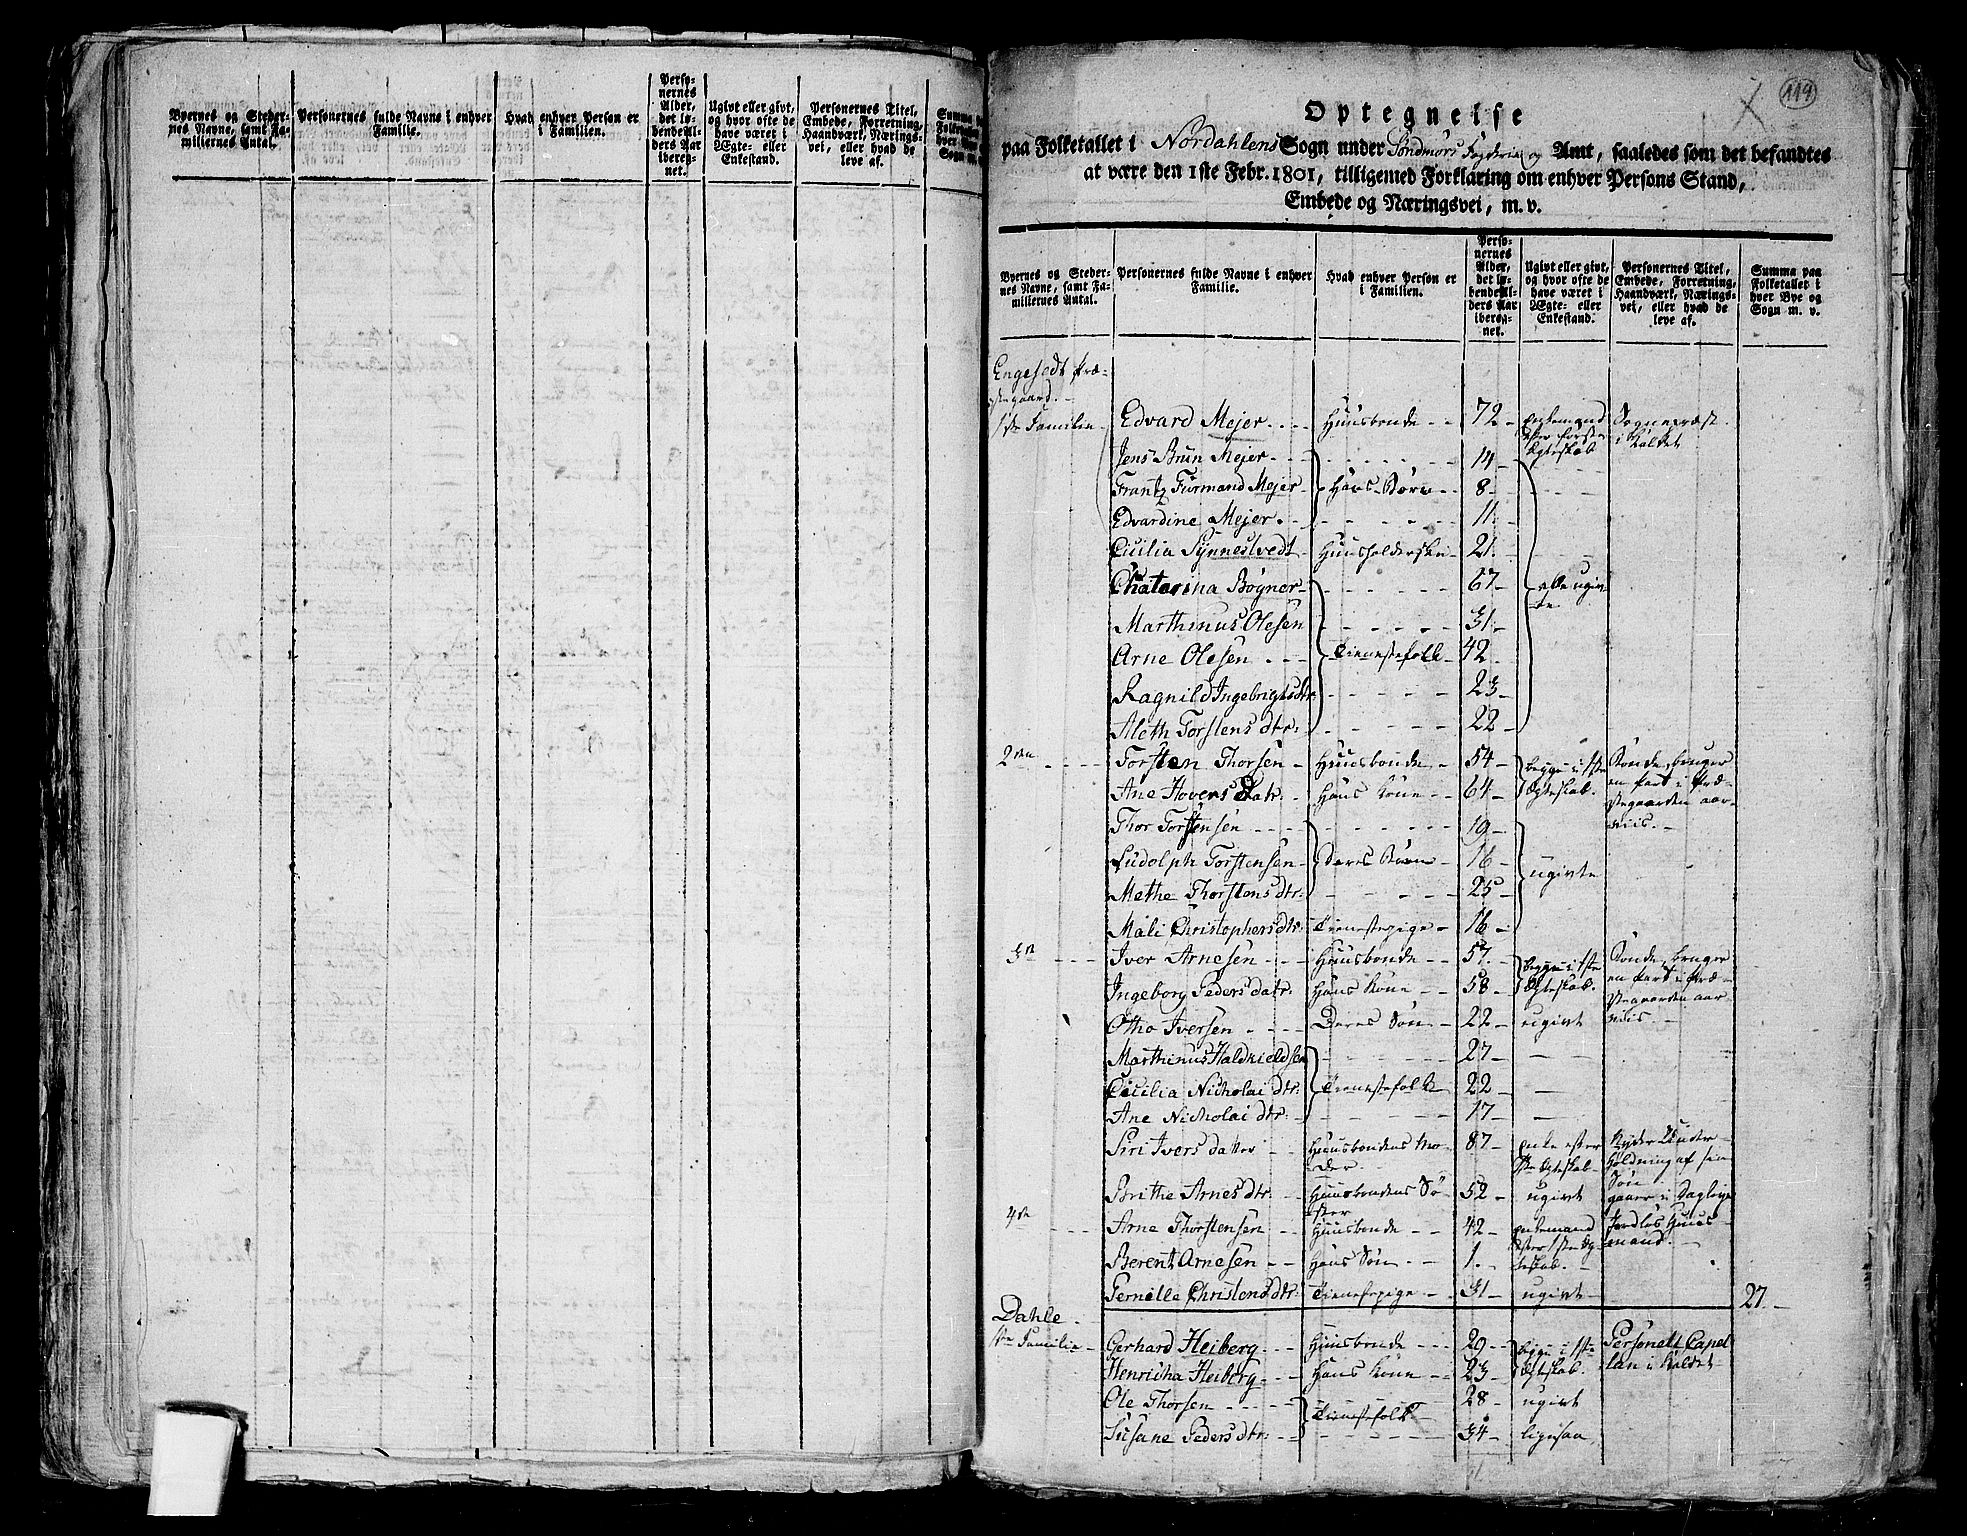 Byernes og Steder-
nes Navne, samt Fa-
miliernes Antal.
Personernes fulde Navne i enhver
Familie.
Hvad enhver Person er
i Familien.
Perso-
nernes
Alder,
det ly-
bende Al-
ders Aar
ibereg-
net.
Ugivt eller givt,
og hvor ofte de
have været i
Ægte- eller
Enkestand.
Personernes Titel,
Embede, Forretning,
Haandværk, Nærings-
vei, eller hvad de
leve af.
119
Optegnelse
paa Folketallet i Nordahlens Sogn under Søndmørs Fogderie og Amt, saaledes som det befandtes
at være den 1ste Febr. 1801, tilligemed Forklaring om enhver Persons Stand,
Embede og Næringsvei, m. v.
Byernes og Steder-
nes Navne, samt Fa-
miliernes Antal.
Personernes fulde Navne i enhver
Familie.
Hvad enhver Person er
i Familien.
Perso-
nernes
Alder,
det ly-
bende Al-
ders Aar
ibereg-
net.
Ugivt eller givt,
og hvor ofte de
have været i
Ægte- eller
Enkestand.
Personernes Titel,
Embede, Forretning,
Haandværk, Nærings-
vei, eller hvad de
leve af.
Summa paa
Folketallet i
hver Bye og
Sogn m. v.
Engesedt Præ-
stegaard.
1ste Familie Edvard Mejer Huusbonde 72 Enkemand Sognepræst
efter første i Kaldet
Ægteskab
Jens Brun Mejer 14
Frantz Furmand Mejer Hans Børn 8
Edvardine Mejer 11
Cicilia Synnestvedt Huusholderske 21
Chatarina Bøgner 67 alle ugiv-
te
Marthinus Olesen 31
Arne Olesen Tienestefolk 42
Ragnild Ingebrigtsdtr: 23
Aleth Torstens dtr: 22
2den Torsten Thorsen Huusbonde 54 begge i 1ste Bonde, bruger
Ane Hovers Datr: Hans Kone 64 Ægteskab. en Part i Præ-
stegaarden aar-
viis.
Thor Torstensen 19
Ludolph Torstensen Deres Børn 16 ugivte
Methe Thorstens dtr: 25
Mali Christophersdtr: Tienestepige 16
3die Iver Arnesen Huusbonde 57 begge i 1ste Bonde, bruger
Ingeborg Peders datr: Hans Kone 58 Ægteskab. en Part i Præ-
stegaarden aar-
Otho Iversen Deres Søn 22 ugivt viis.
Marthinus Haldrieldsen 27
Cicilia Nicholai dtr: Tienestefolk 22
Ane Nicholai dtr: 17
Siri Ivers datter Huusbondens Mo- 87 Enke efter Nyder Under-
der 1ste Ægteskab holdning af sin
Søn
Brithe Arnes dtr. Huusbondens Sø- 52 ugivt gaaer i Dagleye
ster
4de Arne Thorstensen Huusbonde 42 Enkemand Jordløs Huus-
efter 1ste Æg- mand.
Berent Arnesen Hans Søn 1 teskab.
Pernille Christensdtr: Tienestepige 31 ugivt 27
Dahle
1ste Familie Gerhard Heiberg Huusbonde 29 begge i 1ste Personel Capel
Henricha Heiberg Hans Kone 23 Ægteskab. lan i Kaldet
Ole Thorsen 28 ugivt
Tienestefolk
Susane Peders dtr: 34 ligesaa